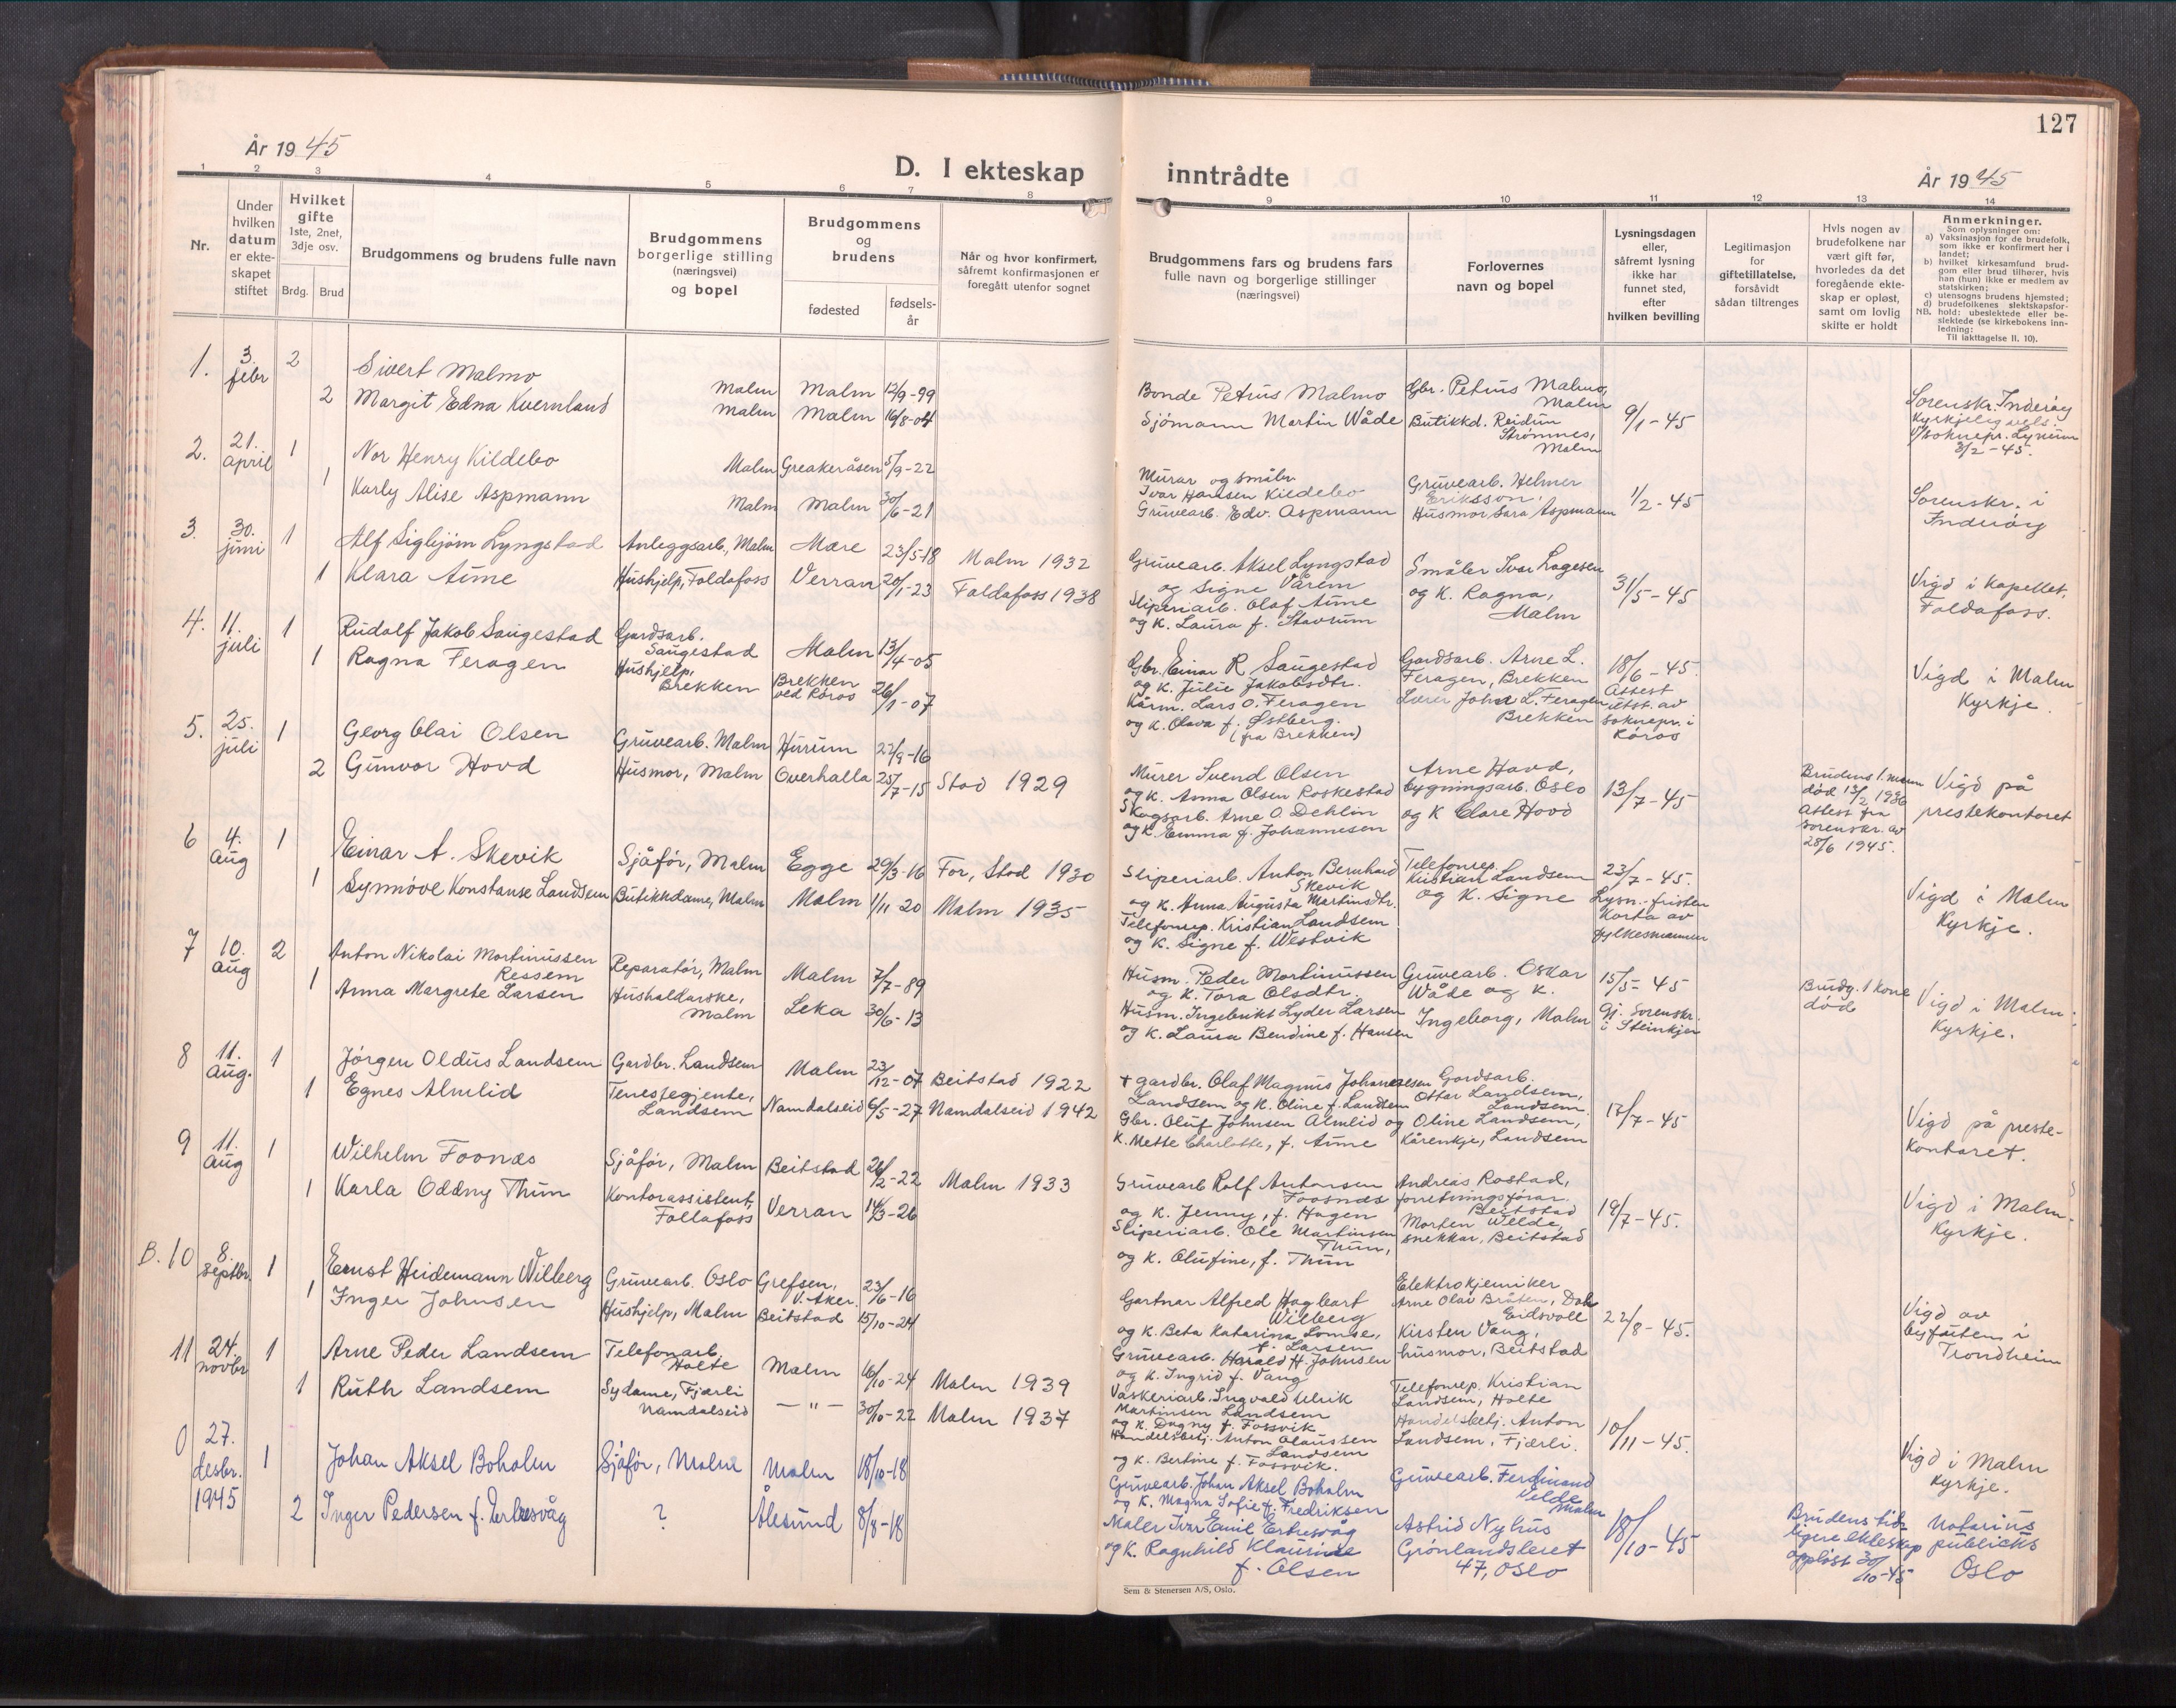 127
År 1945
D. I ekteskap inntrådte
År 1945
1 2 3 4 5 6 7 8 9 10 11 12 13 14
Nr.
Under hvilken datum er ekteskapet stiftet
Hvilket gifte 1ste, 2net, 3dje osv.
Brdg. Brud
Brudgommens og brudens fulle navn
Brudgommens borgerlige stilling (næringsvei) og bopel
Brudgommens og brudens
fødested
fødselsår
Når og hvor konfirmert, såfremt konfirmasjonen er foregått utenfor sognet
Brudgommens fars og brudens fars fulle navn og borgerlige stillinger (næringsvei)
Forlovernes navn og bopel
Lysningsdagen eller, såfremt lysning ikke har funnet sted, efter hvilken bevilling
Legitimasjon for giftetillatelse, forsåvidt sådan tiltrenges
Hvis nogen av brudefolkene har vært gift før, hvorledes da det foregående ekteskap er opløst, samt om lovlig skifte er holdt
Anmerkninger.
Som oplysninger om:
a) Vaksinasjon for de brudefolk, som ikke er konfirmert her i landet;
b) hvilket kirkesamfund brudgom eller brud tilhører, hvis han (hun) ikke er medlem av statskirken;
c) utensogns brudens hjemsted;
d) brudefolkenes slektskapsforhold: ubeslektede eller beslektede (se kirkebokens innledning:
NB. Til iakttagelse II, 10).
1. 3. febr 2 Sivert Malmo Malm Malm 12/9-99
2 Margit Edna Kvernland Malm Malm 16/8-04
Bonde Petrus Malmo
Sjömann Martin Wåde
Gbr. Petrus Malmo, Malm
Butikkd. Reidun Strømnes, Malm
9/1-45
Sorenskr. Inderöy
Kyrkjeleg vels.
v/soknepr. Lynum
3/2-45.
2. 21. april 1 Nor Henry Kildebo Malm Greakeråsen 5/9-22
1 Karly Alise Aspmann Malm Malm 30/6-21
Murar og småbr.
Ivar Hansen Kildebo
Gruvearb. Edv. Aspmann
Gruvearb. Helmer
Eriksson,
Husmor Sara Aspmann
1/2-45
Sorenskr. i
Inderöy
3. 30. juni 1 Alf Sigbjörn Lyngstad Anleggsarb., Malm Mære 23/5-18 Malm 1932
1 Klara Aune Hushjelp, Foldafoss Verran 20/1-23 Foldafoss 1938
Gruvearb. Aksel Lyngstad
og Signe Vårem
Sliperiarb. Olaf Aune
og k. Laura f. Stavrum
Småbr Ivar Lagesen
og k. Ragna,
Malm
31/5-45
Vigd i kapellet,
Foldafoss.
4. 11. juli 1 Rudolf Jakob Saugestad Gardsarb. Saugestad Malm 13/4-05
1 Ragna Feragen Hushjelp, Brekken Brekken ved Röros 26/1-07
Gbr. Einar R. Saugestad
og k. Julie Jakobsdtr.
Kårm. Lars O. Feragen
og k. Olava f. Østberg.
(fra Brekken)
Gardsarb. Arne L.
Feragen, Brekken
Lærer John L. Feragen
Brekken
18/6-45.
Attest
utst. av
soknepr. i
Röros
Vigd i Malm
Kyrkje.
5. 25. juli 1 Georg Olai Olsen Gruvearb. Malm Hurum 22/9-16
2 Gunvor Hovd Husmor, Malm Overhalla 25/7-15 Stod 1929
Murer Svend Olsen
og k. Anna Olsen Roskestad
Skogsarb. Arne O. Dehlin
og k. Emma f. Johannesen
Arne Hovd,
bygningsarb. Oslo
og k Clare Hovd
13/7-45
Brudens 1. mann
död 13/2 1936
Attest fra
sorenskr. av
28/6 1945.
Vigd på
prestekontoret
6 4. Aug 1 Einar A. Skevik Sjåför, Malm Egge 29/3-16 For, Stod 1930
1 Synnöve Konstanse Landsem Butikkdame, Malm Malm 1/11-20 Malm 1935
Sliperiarb. Anton Bernhard
Skevik
og k. Anna Augusta Martinsdtr.
Telefonrep. Kristian Landsem
og k. Signe f. Westvik
Telefonrep.
Kristian Landsem
og k. Signe
23/7-45.
Lysn.-fristen
korta av
fylkesmannen
Vigd i Malm
Kyrkje.
7 10. Aug 2 Anton Nikolai Martinussen Ressem Reparatör, Malm Malm 7/7-89
1 Anna Margrete Larsen Husholdarske, Malm Leka 30/6-13
Husm. Peder Martinussen
og k. Tora Olsdtr.
Husm. Ingebrikt Lyder Larsen
og k. Laura Bendine f. Hansen
Gruvearb. Oskar
Wåde og k.
Ingeborg, Malm
15/5-45
Gj. Sorenskr.
i Steinkjer
Brudg. 1 kone
död
Vigd i Malm
Kyrkje.
8 11. Aug. 1 Jörgen Oldus Landsem Gardbr. Landsem Malm 23/12-07 Beitstad 1922
1 Egnes Almlid Tenestegjente, Landsem Namdalseid 6/5-27 Namdalseid 1942
+ gardbr. Olaf Magnus Johannesen
Landsem og k. Oline f. Landsem
Gbr. Oluf Johnsen Almlid og
k. Mette Charlotte, f. Aune
Gardsarb.
Ottar Landsem,
Landsem.
Oline Landsem,
kårenkje, Landsem
17/7-45
Vigd på preste-
kontoret.
9 11. Aug 1 Wilhelm Foonæs Sjåför, Malm Beitstad 26/2-22 Malm 1933
1 Karla Oddny Thun Kontorassistent, Follafoss Verran 14/3-26
Gruvearb Rolf Antonsen
Foosnæs
og k. Jenny, f. Hagen
Sliperiarb. Ole Martinsen
Thun,
og k. Olufine, f. Thun
Andreas Rostad,
forretningsförar.
Beitstad
Morten Welde,
snekkar, Beitstad
19/7-45.
Vigd i Malm
Kyrkje.
B. 10 8. Septbr. 1 Ernst Heidemann Wilberg Gruvearb. Oslo Grefsen, V. Aker. 23/6-16
1 Inger Johnsen Hushjelp, Malm Beitstad 15/10-24
Gartnar Alfred Hagbart
Wilberg
og k. Beta Katarina Lomse,
f. Larsen
Gruvearb. Harald H. Johnsen
og k. Ingrid f. Vang
Elektrokjemiker
Arne Olai Bråten, Dal
Eidsvoll
Kirsten Vang,
husmor, Beitstad
22/8-45.
Vigd av
byfuten i
Trondheim
11 24. novbr 1 Arne Peder Landsem Telefonarb. Holte Malm 16/10-24 Malm 1939
1 Ruth Landsem Sydame, Fjærli Namdalseid — " — 30/10-22 Malm 1937
Vaskeriarb. Ingvald Ulrik
Martinsen Landsem
og k. Dagny f. Fossvik
Handelsbetj. Anton Olaussen
Landsem
og k. Bertine f. Fossvik.
Telefonrep. Kristian
Landsem, Holte
Handelsbetj. Anton
Landsem, Fjærli.
10/11-45.
Vigd i Malm
Kyrkje.
0 27. desbr. 1945 1 Johan Aksel Boholm Sjåför, Malm Malm 18/10-18
2 Inger Pedersen f. Ertresvåg ? Ålesund 8/8-18
Gruvearb. Johan Aksel Boholm
og k. Magna Sofie f. Fredriksen
Maler Ivar Emil Ertresvåg
og k. Ragnhild Klaurine
f. Olsen
Gruvearb. Ferdinand
Velde
Malm
Astrid Nyhus
Grönlandsleret
47, Oslo
18/10-45
Brudens tid-
ligere ekteskap
opplöst 30/10-45
Notarius
publicus
Oslo
Sem & Stenersen A/S, Oslo.